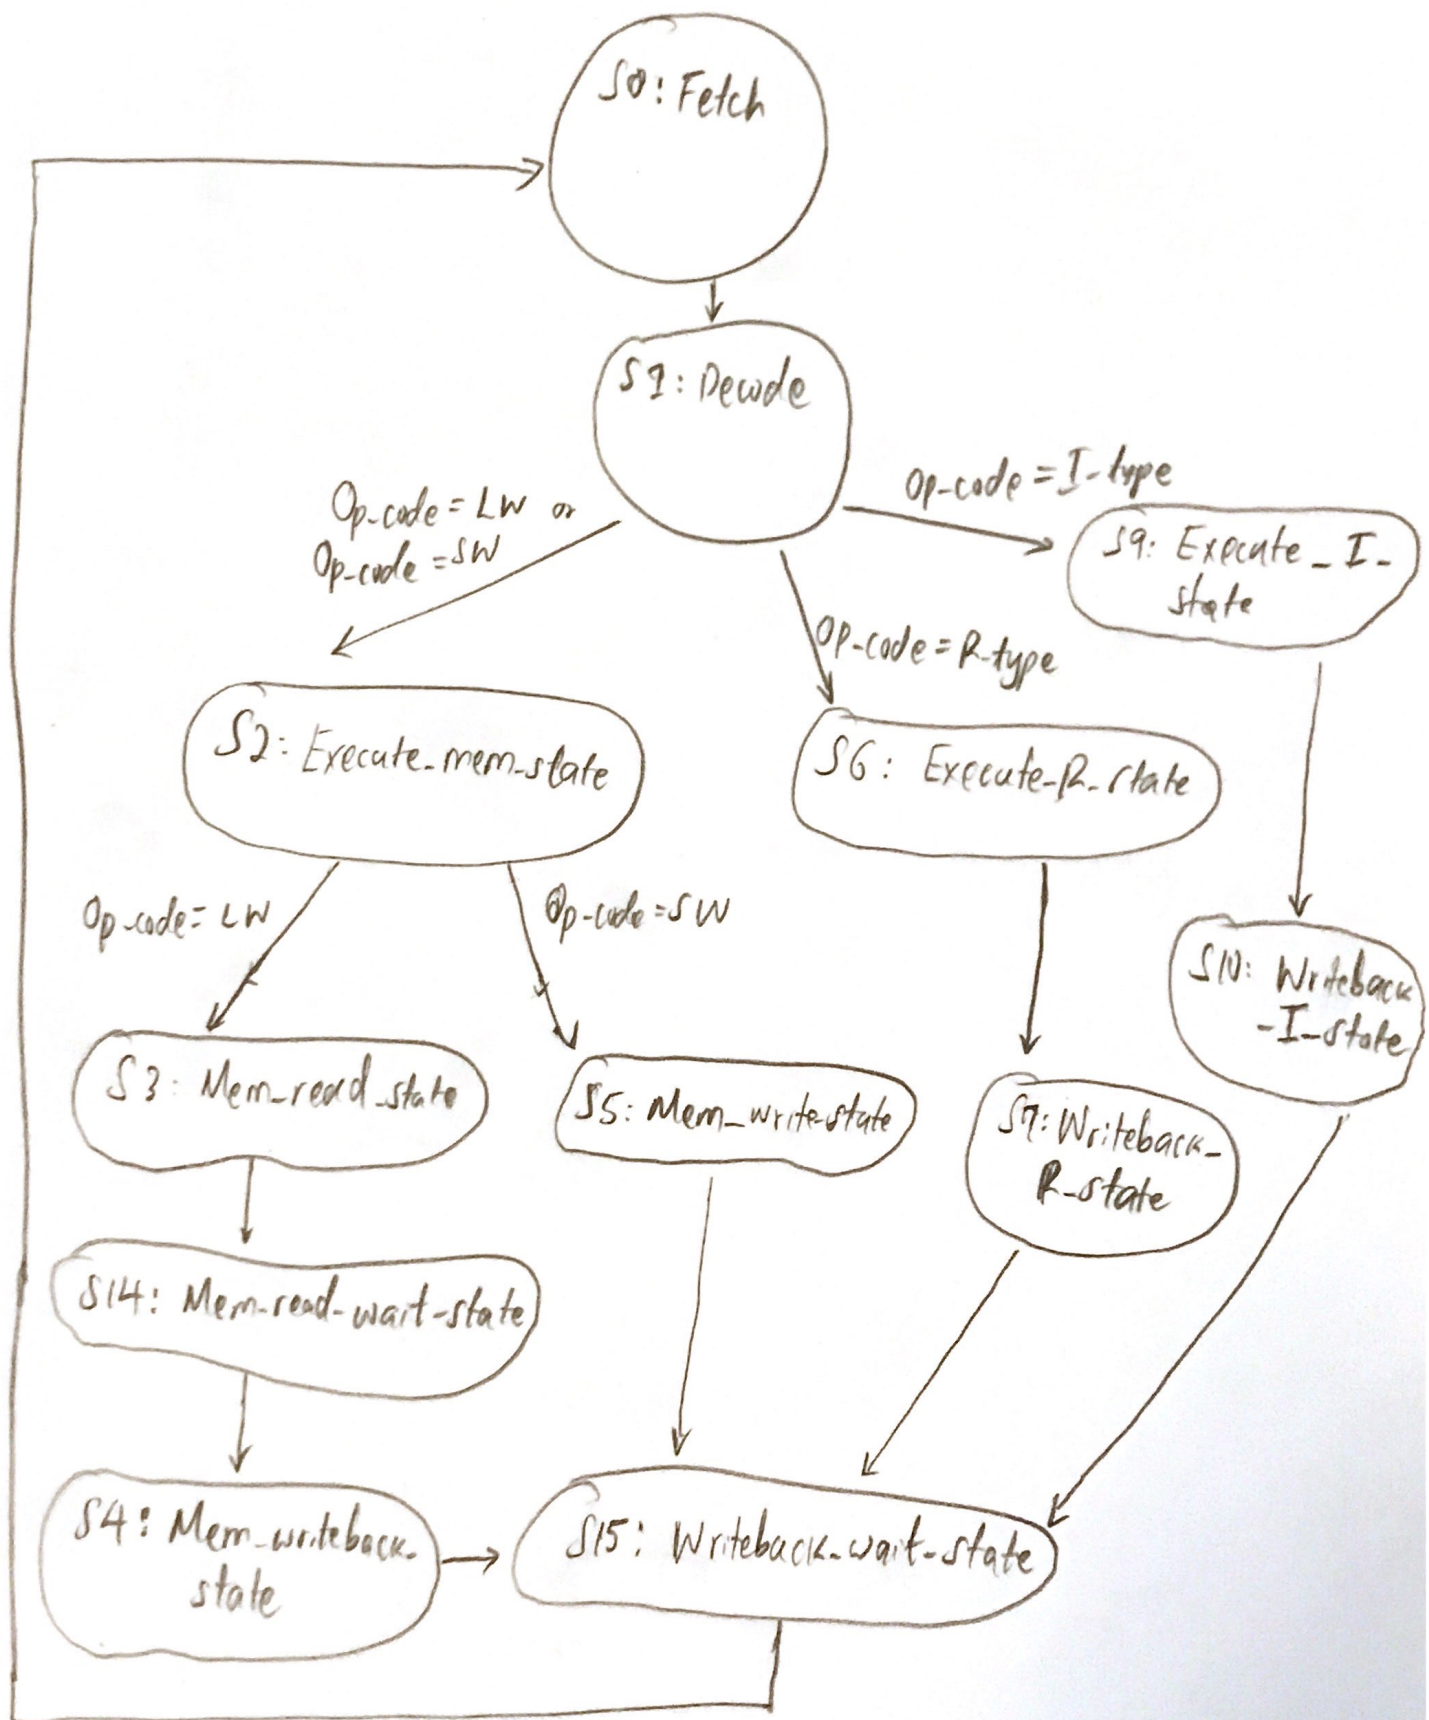 S0: Fetch
S1: Decode
Op-code = I-type
Op-code = LW or
Op-code = SW
S9: Execute_I_
state
Op-code = R-type
S2: Execute_mem_state
S6: Execute_R_state
Op-code = LW
Op-code = SW
S10: Writeback
_I_state
S3: Mem_read_state
S5: Mem_write-state
S7: Writeback_
R_state
S14: Mem-read-wait-state
S4: Mem_writeback_
state
S15: Writeback_wait-state